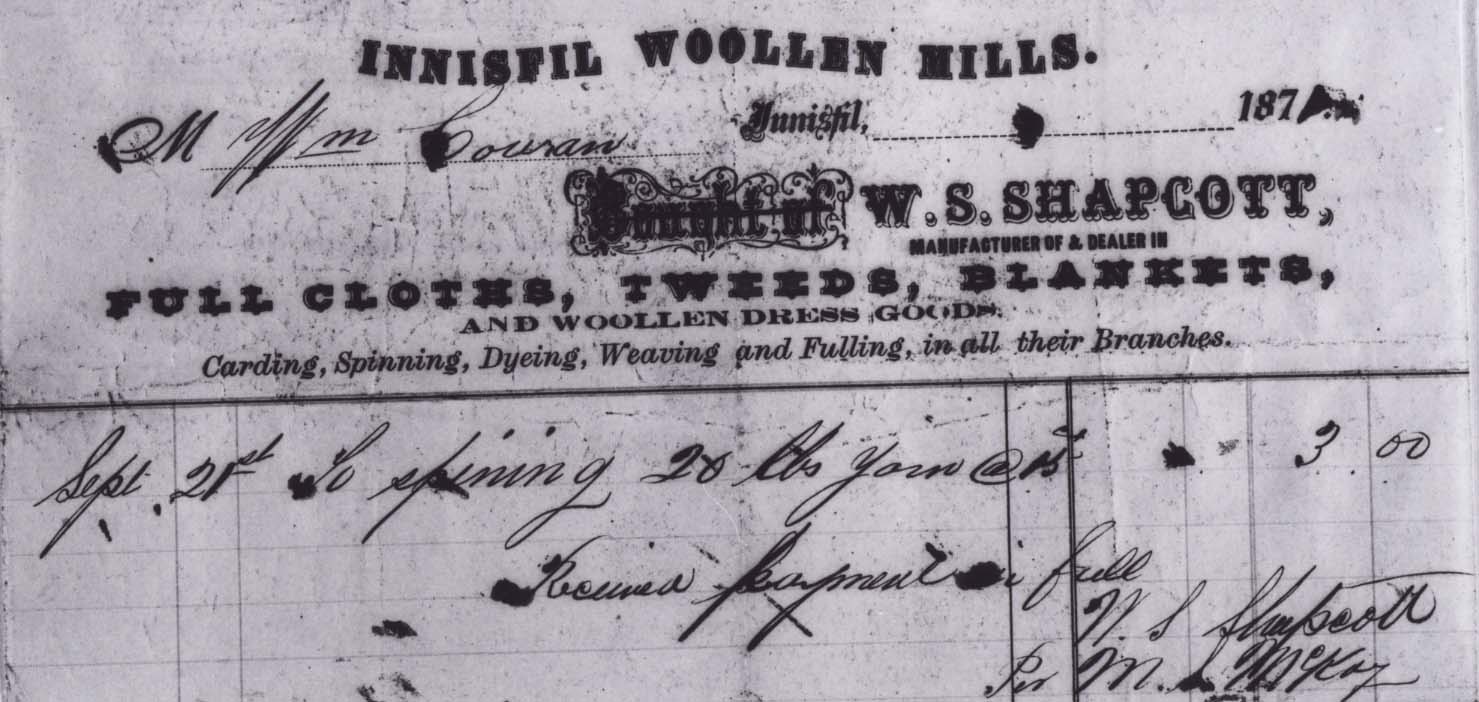 INNISFIL WOOLLEN MILLS.
M Wm Cowan Innisfil, 187
Bought of W. S. SHAPCOTT,
MANUFACTURER OF & DEALER IN
FULL CLOTHS, TWEEDS, BLANKETS,
AND WOOLLEN DRESS GOODS.
Carding, Spinning, Dyeing, Weaving and Fulling, in all their Branches.
Sept. 21st To spining 20 lbs yarn @ 15 3.00
Received payment in full
W. S Shapcott
Per M. McKay